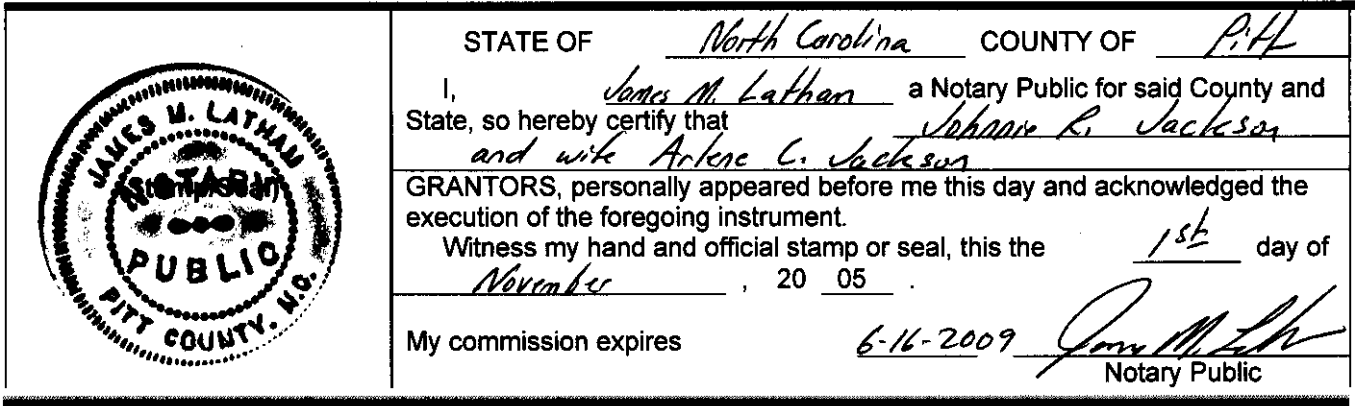 JAMES M. LATHAM
NOTARY
(Stamp/Seal)
PUBLIC
PITT COUNTY, N.C.
STATE OF North Carolina COUNTY OF Pitt
I, James M. Latham a Notary Public for said County and
State, so hereby certify that Johnnie R. Jackson
and wife Arlene C. Jackson
GRANTORS, personally appeared before me this day and acknowledged the
execution of the foregoing instrument.
Witness my hand and official stamp or seal, this the 1st day of
November , 20 05 .
My commission expires 6-16-2009 James M. Latham
Notary Public